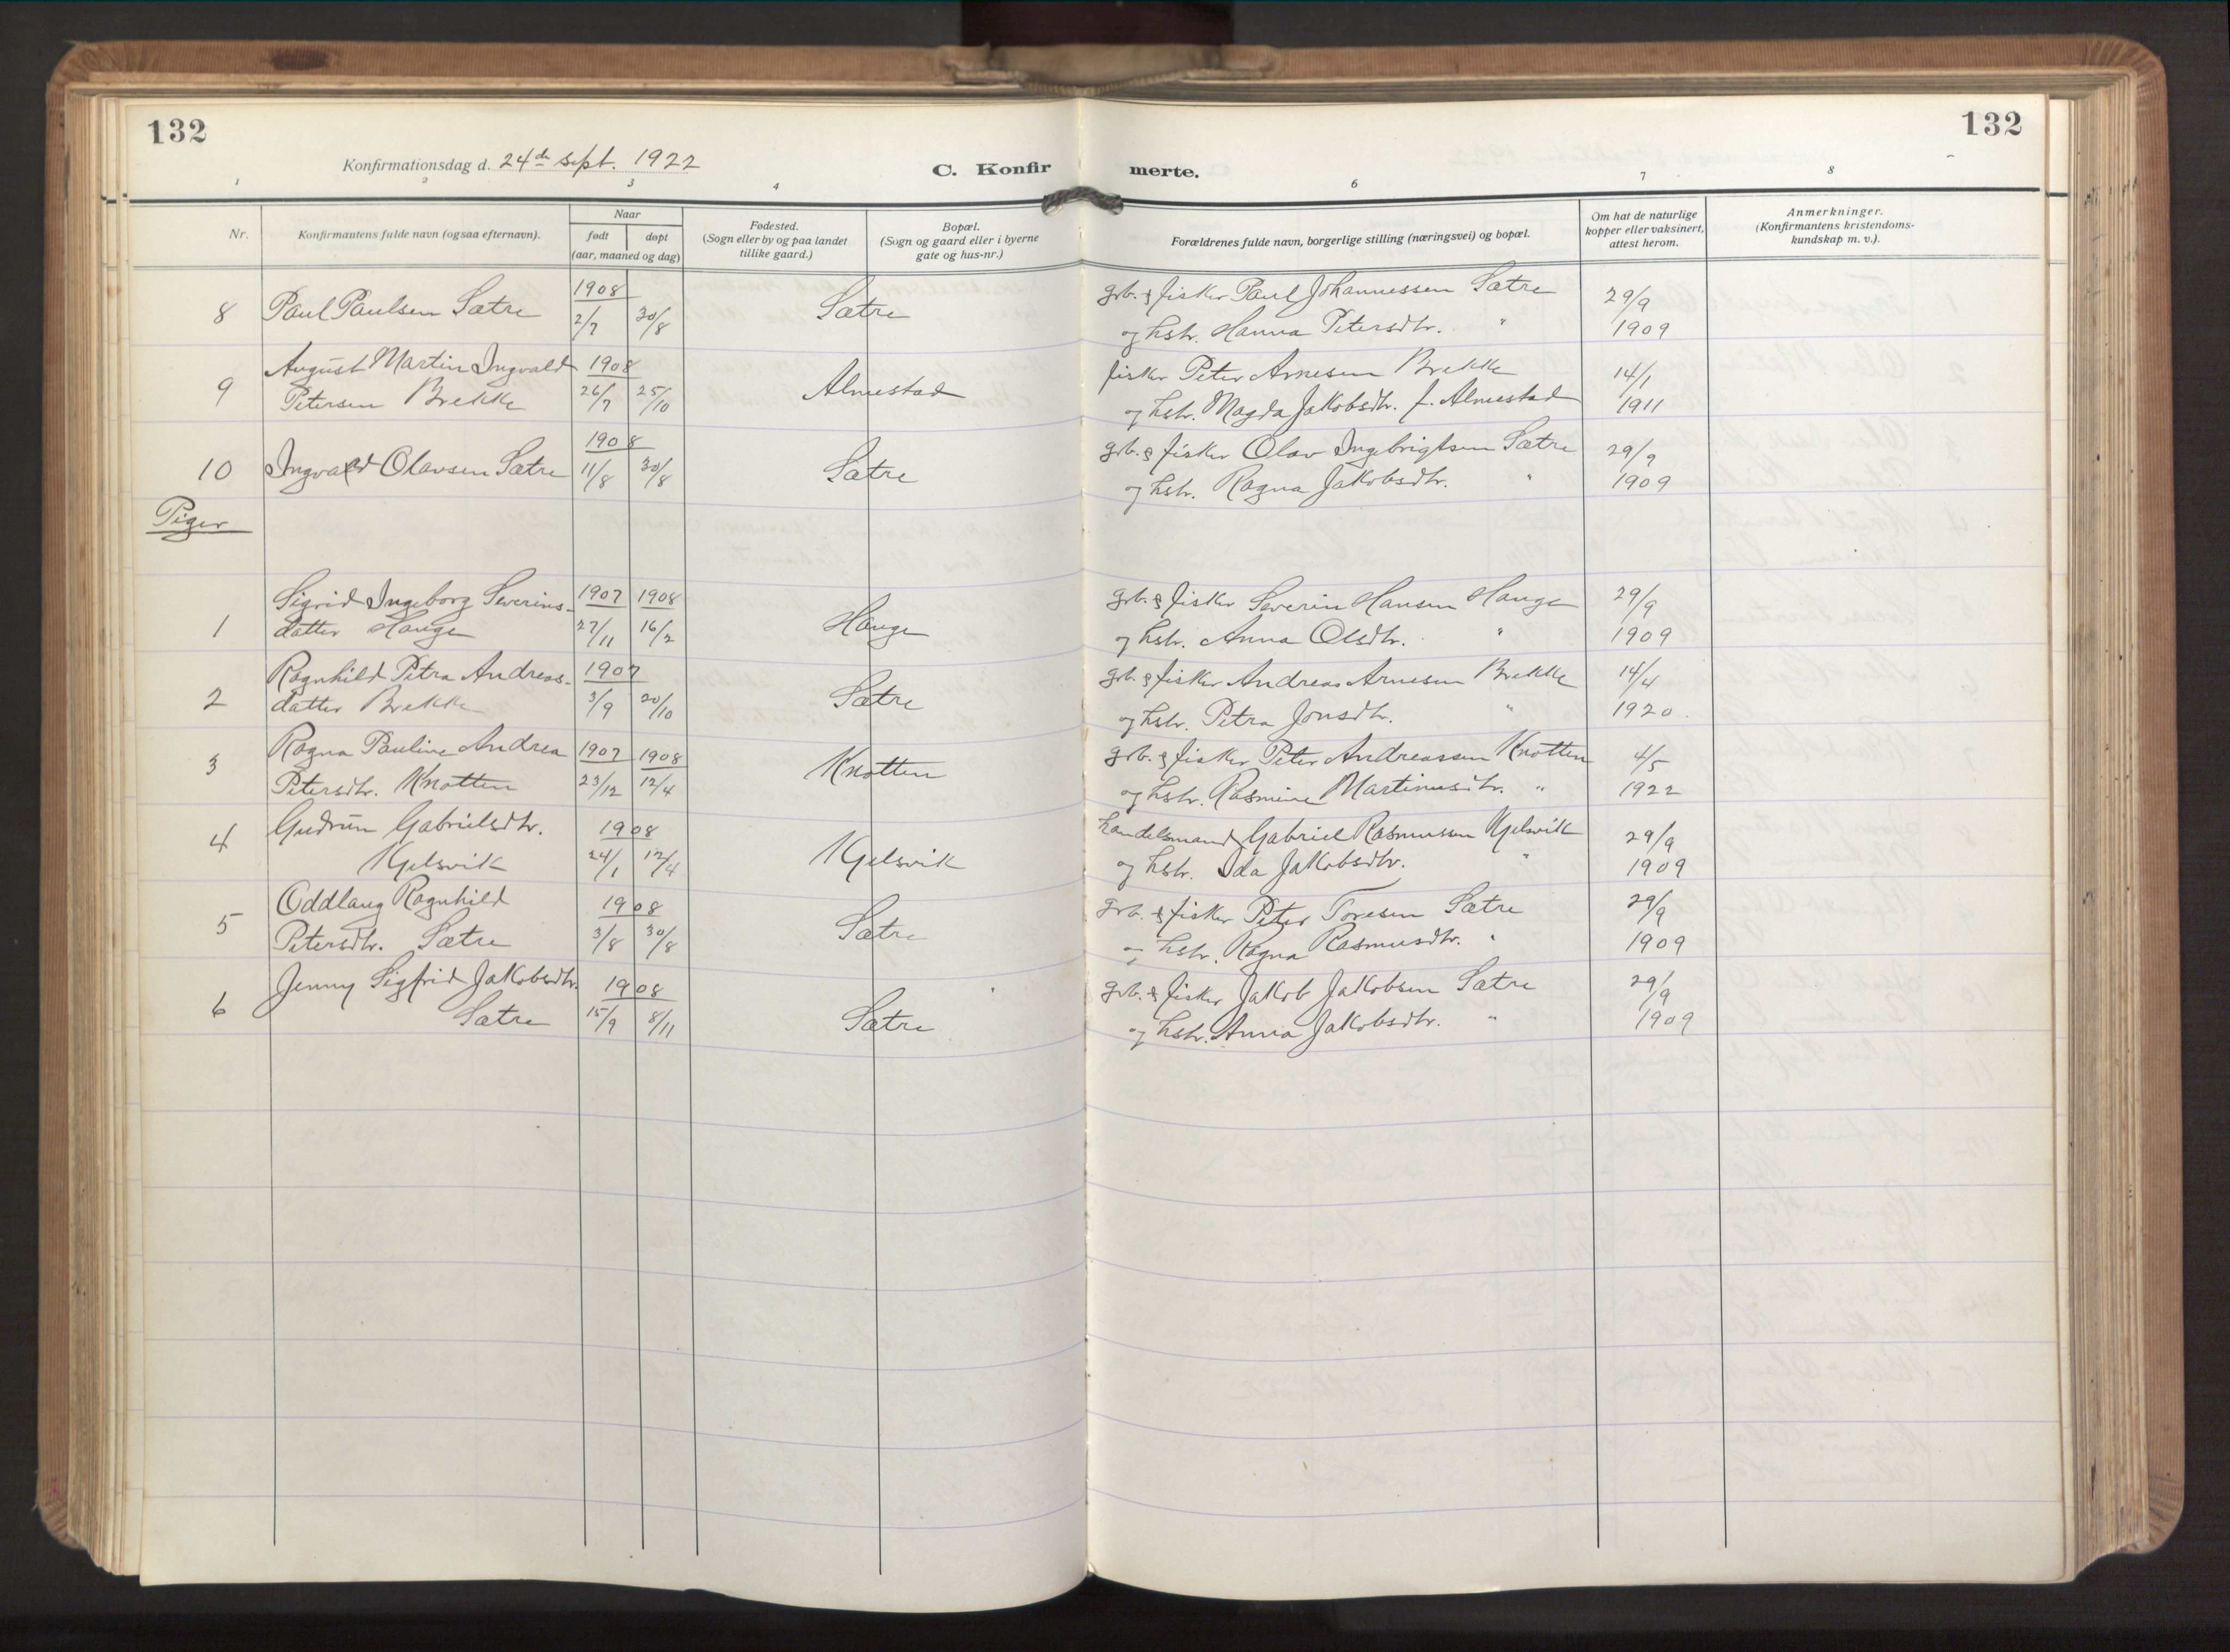 132
132
Konfirmationsdag d. 24de sept. 1922
C. Konfir
merte.
1 2 3 4 6 7 8
Nr.
Konfirmantens fulde navn (ogsaa efternavn).
Naar
født
døpt
(aar, maaned og dag)
Fødested.
(Sogn eller by og paa landet
tillike gaard.)
Bopæl.
(Sogn og gaard eller i byerne
gate og hus-nr.)
Forældrenes fulde navn, borgerlige stilling (næringsvei) og bopæl.
Om hat de naturlige
kopper eller vaksinert,
attest herom.
Anmerkninger.
(Konfirmantens kristendoms-
kundskap m. v.).
1908 grb. & fisker Paul Johannessen Sætre 29/9
8 Paul Paulsen Sætre 2/7 30/8 Sætre og hstr. Hanna Petersdtr. " 1909
August Martin Ingvald 1908 fisker Peter Arnesen Brekke 14/1
9 Petersen Brekke 26/7 25/10 Almestad og hstr. Magda Jakobsdtr. f. Almestad 1911
1908 grb. & fisker Olav Ingebrigtsen Sætre 29/9
10 Ingvald Olavsen Sætre 11/8 30/8 Sætre og hstr. Ragna Jakobsdtr. " 1909
Piger
Sigrid Ingeborg Severins- 1907 1908 grb. & fisker Severin Hansen Hauge 29/9
1 datter Hauge 27/11 16/2 Hauge og hstr. Anna Olsdtr. " 1909
Ragnhild Petra Andreas- 1907 grb. & fisker Andreas Arnesen Brekke 14/4
2 datter Brekke 3/9 20/10 Sætre og hstr. Petra Jonsdtr. " 1920.
3 Ragna Pauline Andrea 1907 1908 grb. & fisker Peter Andreassen Knotten 4/5
Petersdtr. Knotten 23/12 12/4 Knotten og hstr. Rasmine Martinusdtr. " 1922
4 Gudrun Gabrielsdtr. 1908 handelsmand Gabriel Rasmussen Kjelsvik 29/9
Kjelsvik 24/1 12/4 Kjelsvik og hstr. Ida Jakobsdtr. " 1909
Oddlaug Ragnhild 1908 grb. & fisker Peter Toresen Sætre 29/9
5 Petersdtr. Sætre 3/8 30/8 Sætre og hstr. Ragna Rasmusdtr. " 1909
Jenny Sigfrid Jakobsdtr. 1908 grb. & fisker Jakob Jakobsen Sætre 29/9
6 Sætre 15/9 8/11 Sætre og hstr. Anna Jakobsdtr. " 1909